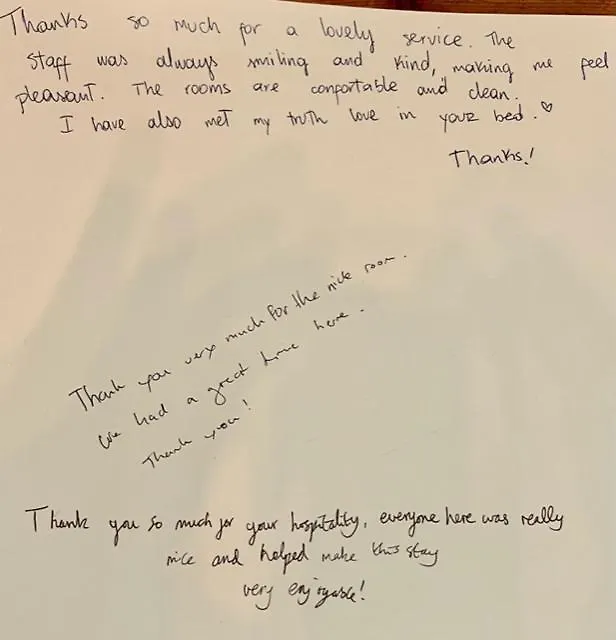 Thanks so much for a lovely service. The
staff was always smiling and kind, making me feel
pleasant. The rooms are confortable and clean.
I have also met my truth love in your bed. ♡
Thanks!
Thank you very much for the nice room.
We had a great time here.
Thank you!
Thank you so much for your hospitality, everyone here was really
nice and helped make this stay
very enjoyable!